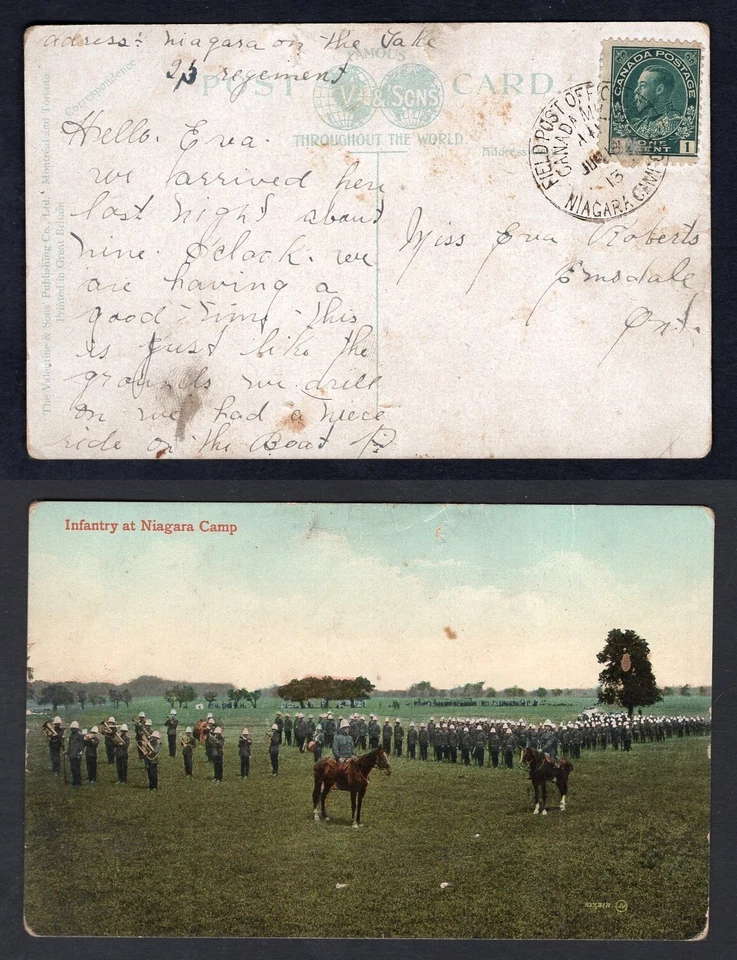 adress: niagara on the Lake
23 regement
FAMOUS
POST CARD.
V & SONS
THROUGHOUT THE WORLD.
Correspondence
Address
The Valentine & Sons' Publishing Co., Ltd., Montreal and Toronto
Printed in Great Britain
CANADA POSTAGE
ONE CENT 1
FIELD POST OFFICE
CANADA
13
NIAGARA CAMP
Hello. Eva.
we arrived here
last night about
nine. Oclock. we
are having a
good time this
is just like the
grounds we drill
on we had a niece
ride on the Boat
Miss Eva Roberts
Emsdale
Ont.
Infantry at Niagara Camp